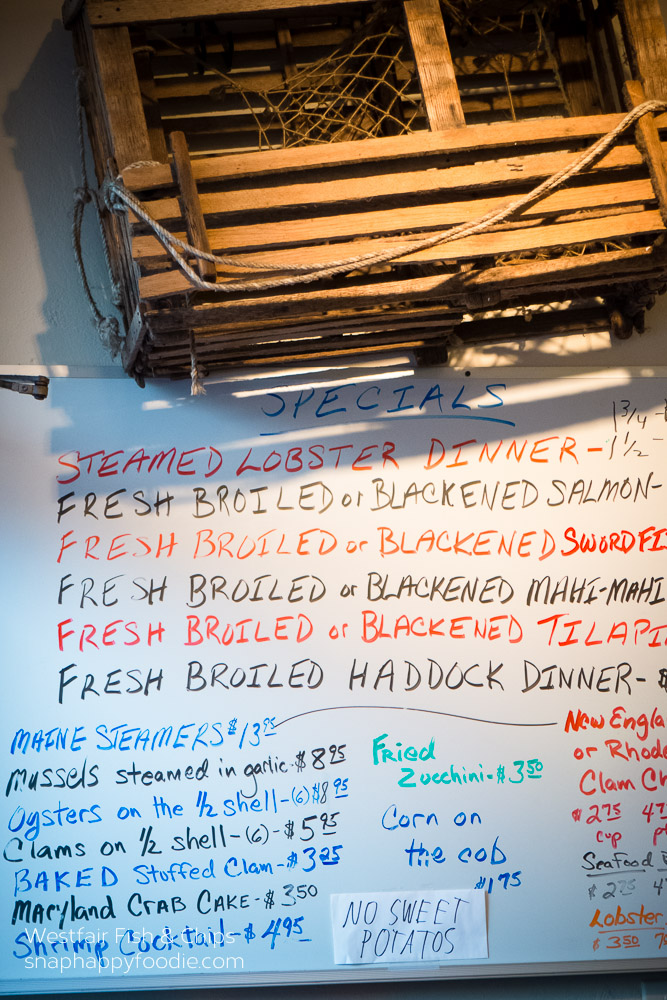 SPECIALS
1 3/4 -
STEAMED LOBSTER DINNER - 1 1/2 -
FRESH BROILED or BLACKENED SALMON -
FRESH BROILED or BLACKENED SWORDFI
FRESH BROILED or BLACKENED MAHI-MAHI
FRESH BROILED or BLACKENED TILAPI
FRESH BROILED HADDOCK DINNER - $
MAINE STEAMERS $13.95
Mussels steamed in garlic - $8.95
Oysters on the 1/2 shell - (6) $8.95
Clams on 1/2 shell - (6) - $5.95
BAKED Stuffed Clam - $3.25
Maryland CRAB CAKE - $3.50
Shrimp Cocktail - $4.95
Fried
Zucchini - $3.50
Corn on
the cob
$1.75
NO SWEET
POTATOS
New Engla
or Rhode
Clam Ch
$2.75 4.75
cup pt
Seafood
$2.75 4
Lobster
$3.50 7
Westfair Fish & Chips
snaphappyfoodie.com